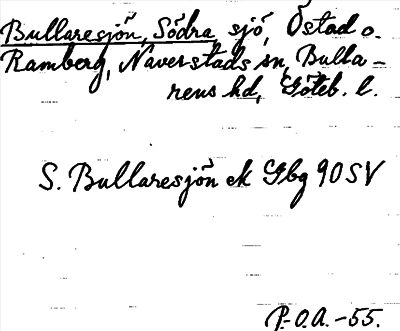 Bullaresjön, Södra sjö, Östad o.
Ramberg, Naverstads sn, Bulla-
rens hd, Göteb. l.
S. Bullaresjön ek Gbg 90 SV
P.-O.A. -55.